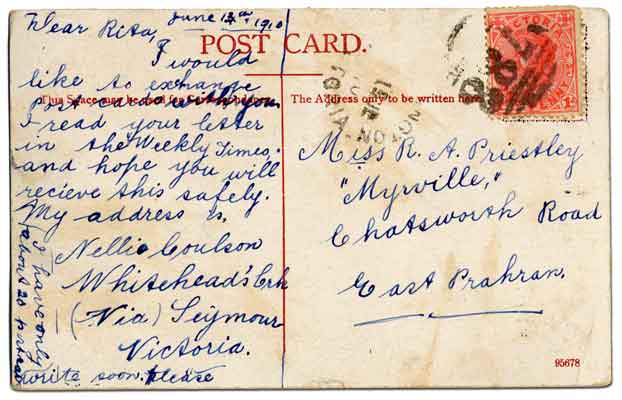 June 13th 1910
Dear Rita,
I would
like to exchange
post cards with you
I read your letter
in the Weekly Times.
and hope you will
recieve this safely.
My address is,
Nellie Coulson
Whitehead's Crk
(Via) Seymour
Victoria.
write soon. please
(I have only
about 20 p.c.
POST CARD.
This Space may be used for Correspondence
The Address only to be written here
VICTORIA
1d
Miss R. A. Priestley
"Myrville,"
Chatsworth Road
East Prahran.
95678